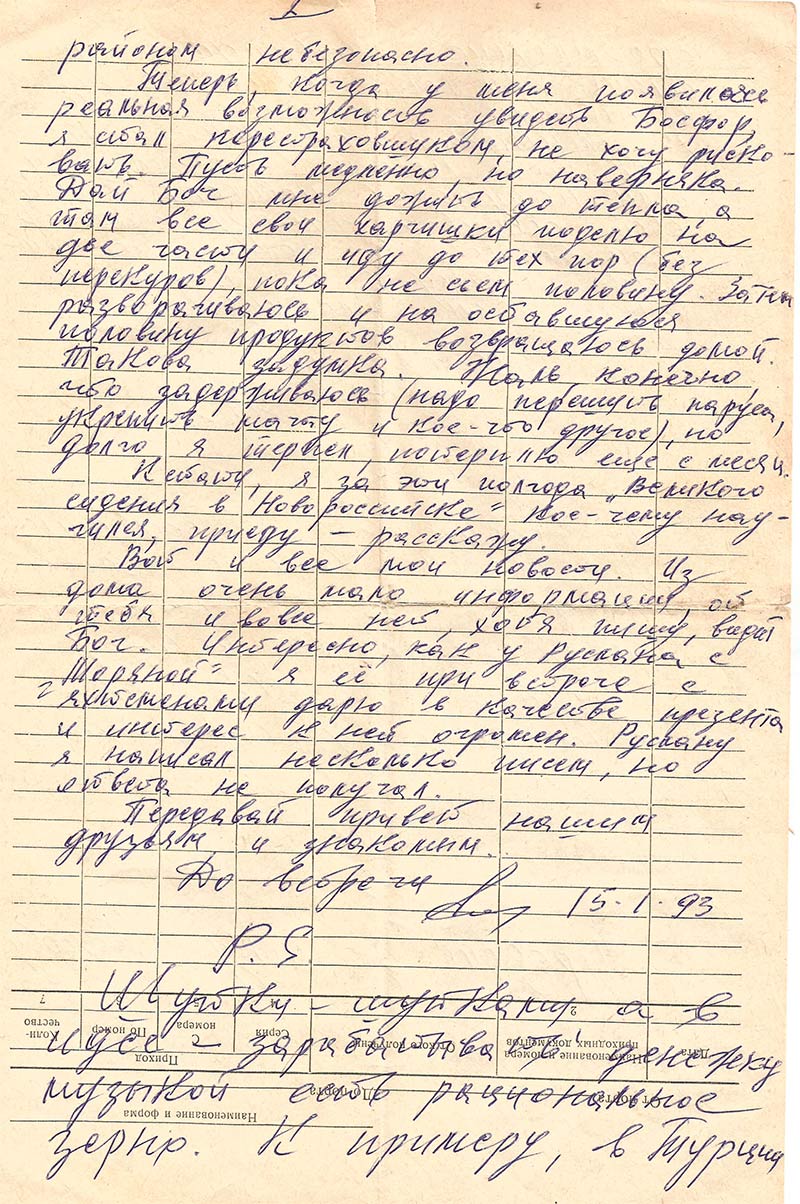 районом небезопасно.
Теперь, когда у меня появилась
реальная возможность увидеть Босфор,
я стал перестраховщиком, не хочу риско-
вать. Пусть медленно, но наверняка.
Дай Бог мне дожить до тепла, а
там все свои харчишки поделю на
две части и иду до тех пор (без
перекуров), пока не съем половину. Затем
разворачиваюсь и на оставшуюся
половину продуктов возвращаюсь домой.
Такова задумка. Жаль конечно,
что задерживаюсь (надо перешить паруса,
укрепить мачту и кое-что другое), но
долго я терпел, потерплю еще с месяц.
Кстати, я за эти полгода „Великого
сидения в Новороссийске" кое-чему нау-
чился, приеду – расскажу.
Вот и все мои новости. Из
дома очень мало информации, от
тебя и вовсе нет, хотя пишу, видит
Бог. Интересно, как у Руслана с
Моряной" я её при встрече с
яхтсменами дарю в качестве презента
и интерес к ней огромен. Руслану
я написал несколько писем, но
ответа не получал.
Передавай привет нашим
друзьям и знакомым.
До встречи
15.1.93
P.S.
Шутки – шутками а в
идее – зарабатывать денежку
музыкой есть рациональное
зерно. К примеру, в Турции
Дата
Наименование и номера приходных документов
2
От кого получено
Серия
4
номера
5
По номер
Коли-
чество
7
Приход
От порта
До порта
Наименование и форма